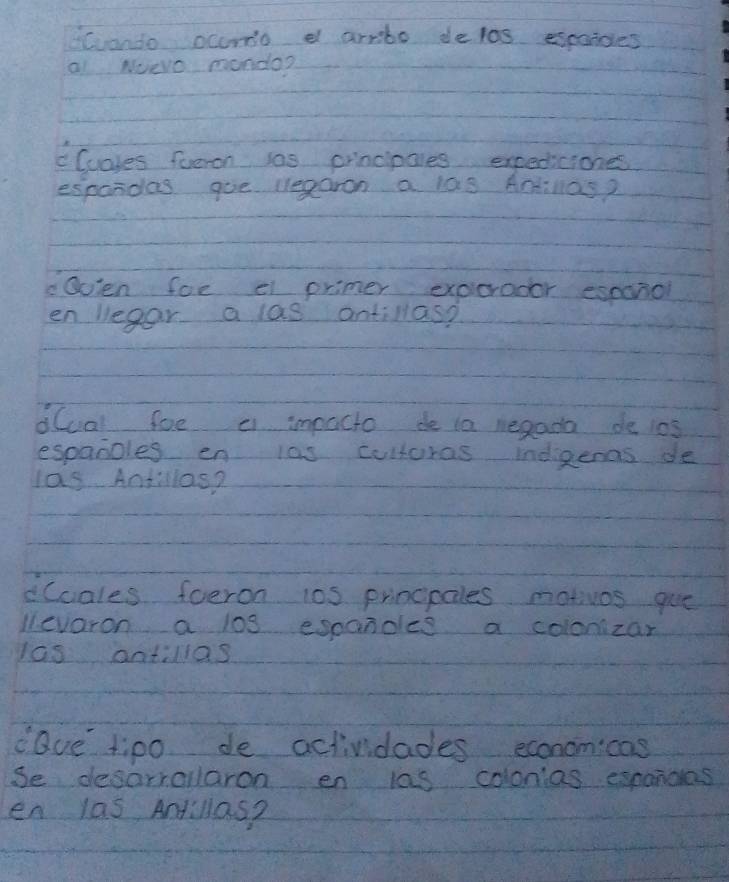 ¿Cuando ocurrio el arribo de los españoles
al Nuevo mondo?
¿Cuales fueron las principales expediciones
españolas que llegaron a las Antillas?
¿Quien fue el primer explorador español
en llegar a las antillas?
¿Cual fue el impacto de la llegada de los
españoles en las culturas indigenas de
las Antillas?
¿Cuales fueron los principales motivos que
llevaron a los españoles a colonizar
las antillas
¿Qué tipo de actividades económicas
se desarrollaron en las colonias españolas
en las Antillas?